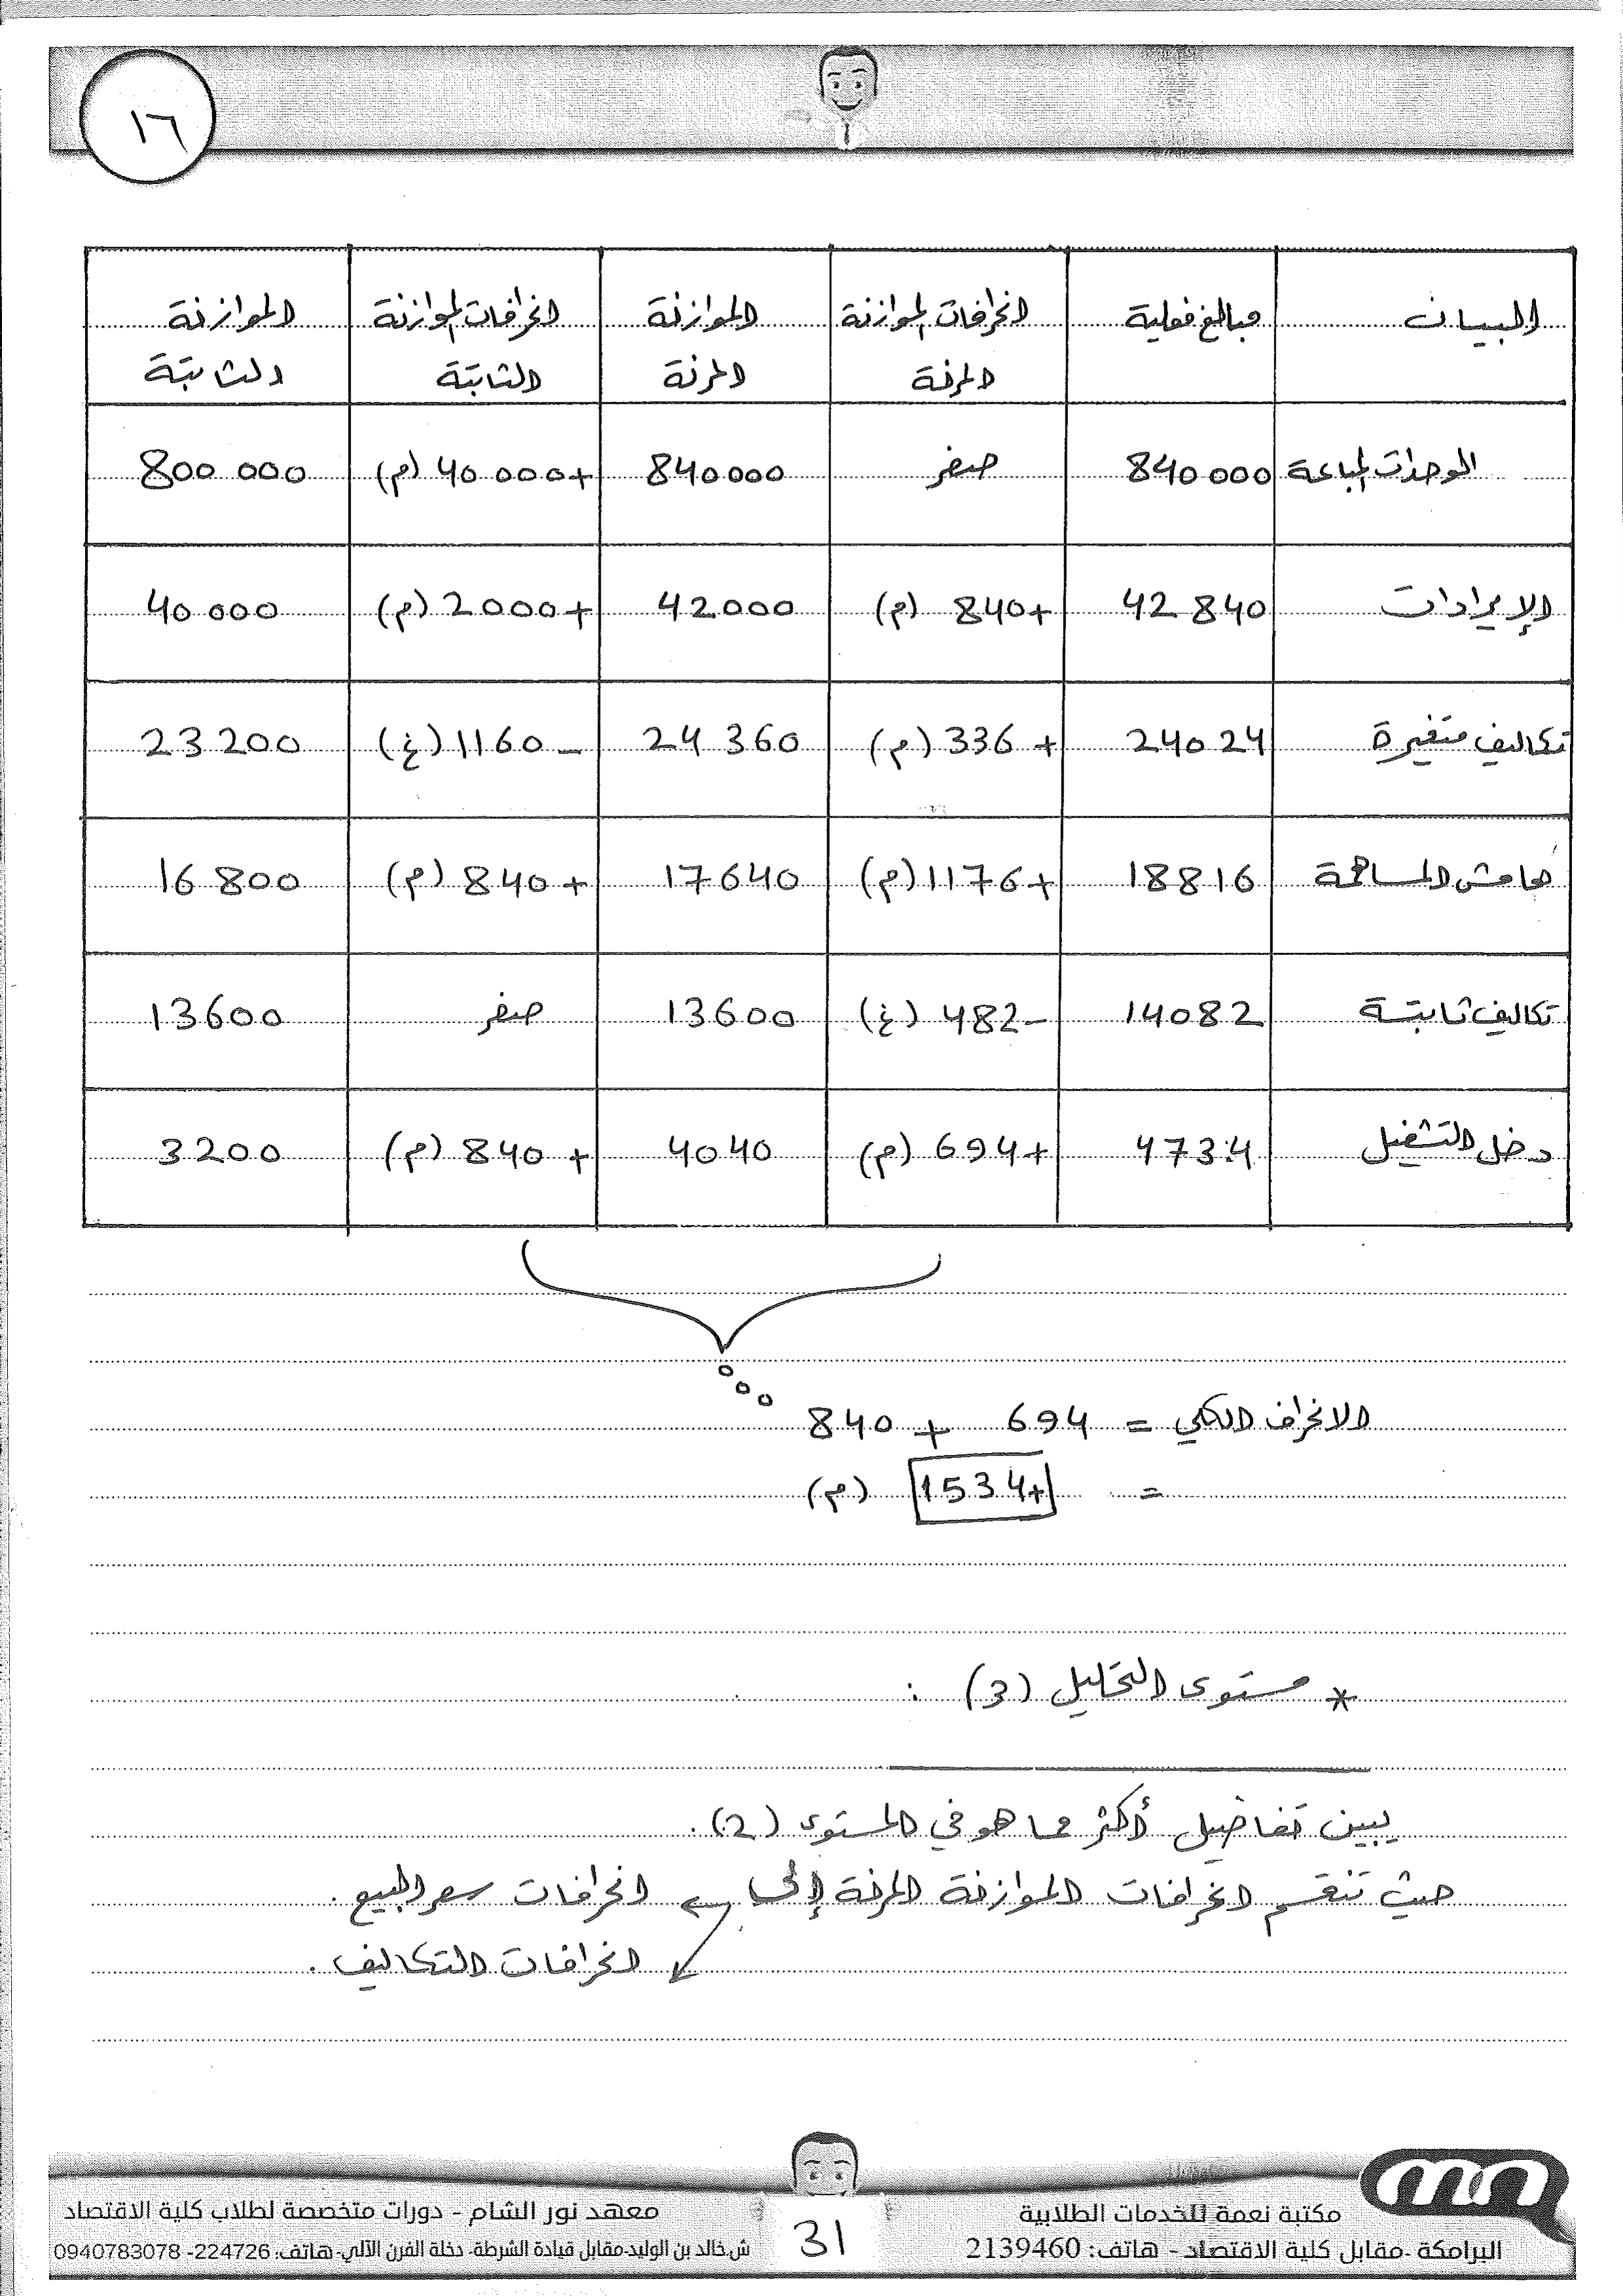 ١٦
البيان مبالغ فعلية انحرافات الموازنة المرنة الموازنة المرنة انحرافات الموازنة الثابتة الموازنة الثابتة
الوحدات المباعة 840000 صفر 840000 +40000 (م) 800000
الإيرادات 42840 +840 (م) 42000 +2000 (م) 40000
تكاليف متغيرة 24024 +336 (م) 24360 -1160 (غ) 23200
هامش المساهمة 18816 +1176 (م) 17640 +840 (م) 16800
تكاليف ثابتة 14082 -482 (غ) 13600 صفر 13600
دخل التشغيل 4734 +694 (م) 4040 +840 (م) 3200
الانحراف الكلي = 694 + 840
= +1534 (م)
* مستوى التحليل (3) :
يبين تفاصيل أكثر مما هو في المستوى (2).
حيث تنقسم انحرافات الموازنة المرنة إلى انحرافات سعر المبيع.
انحرافات التكاليف.
مكتبة نعمة للخدمات الطلابية
البرامكة -مقابل كلية الاقتصاد - هاتف: 2139460
31
معهد نور الشام - دورات متخصصة لطلاب كلية الاقتصاد
ش.خالد بن الوليد-مقابل قيادة الشرطة- دخلة الفرن الآلي- هاتف: 224726- 0940783078